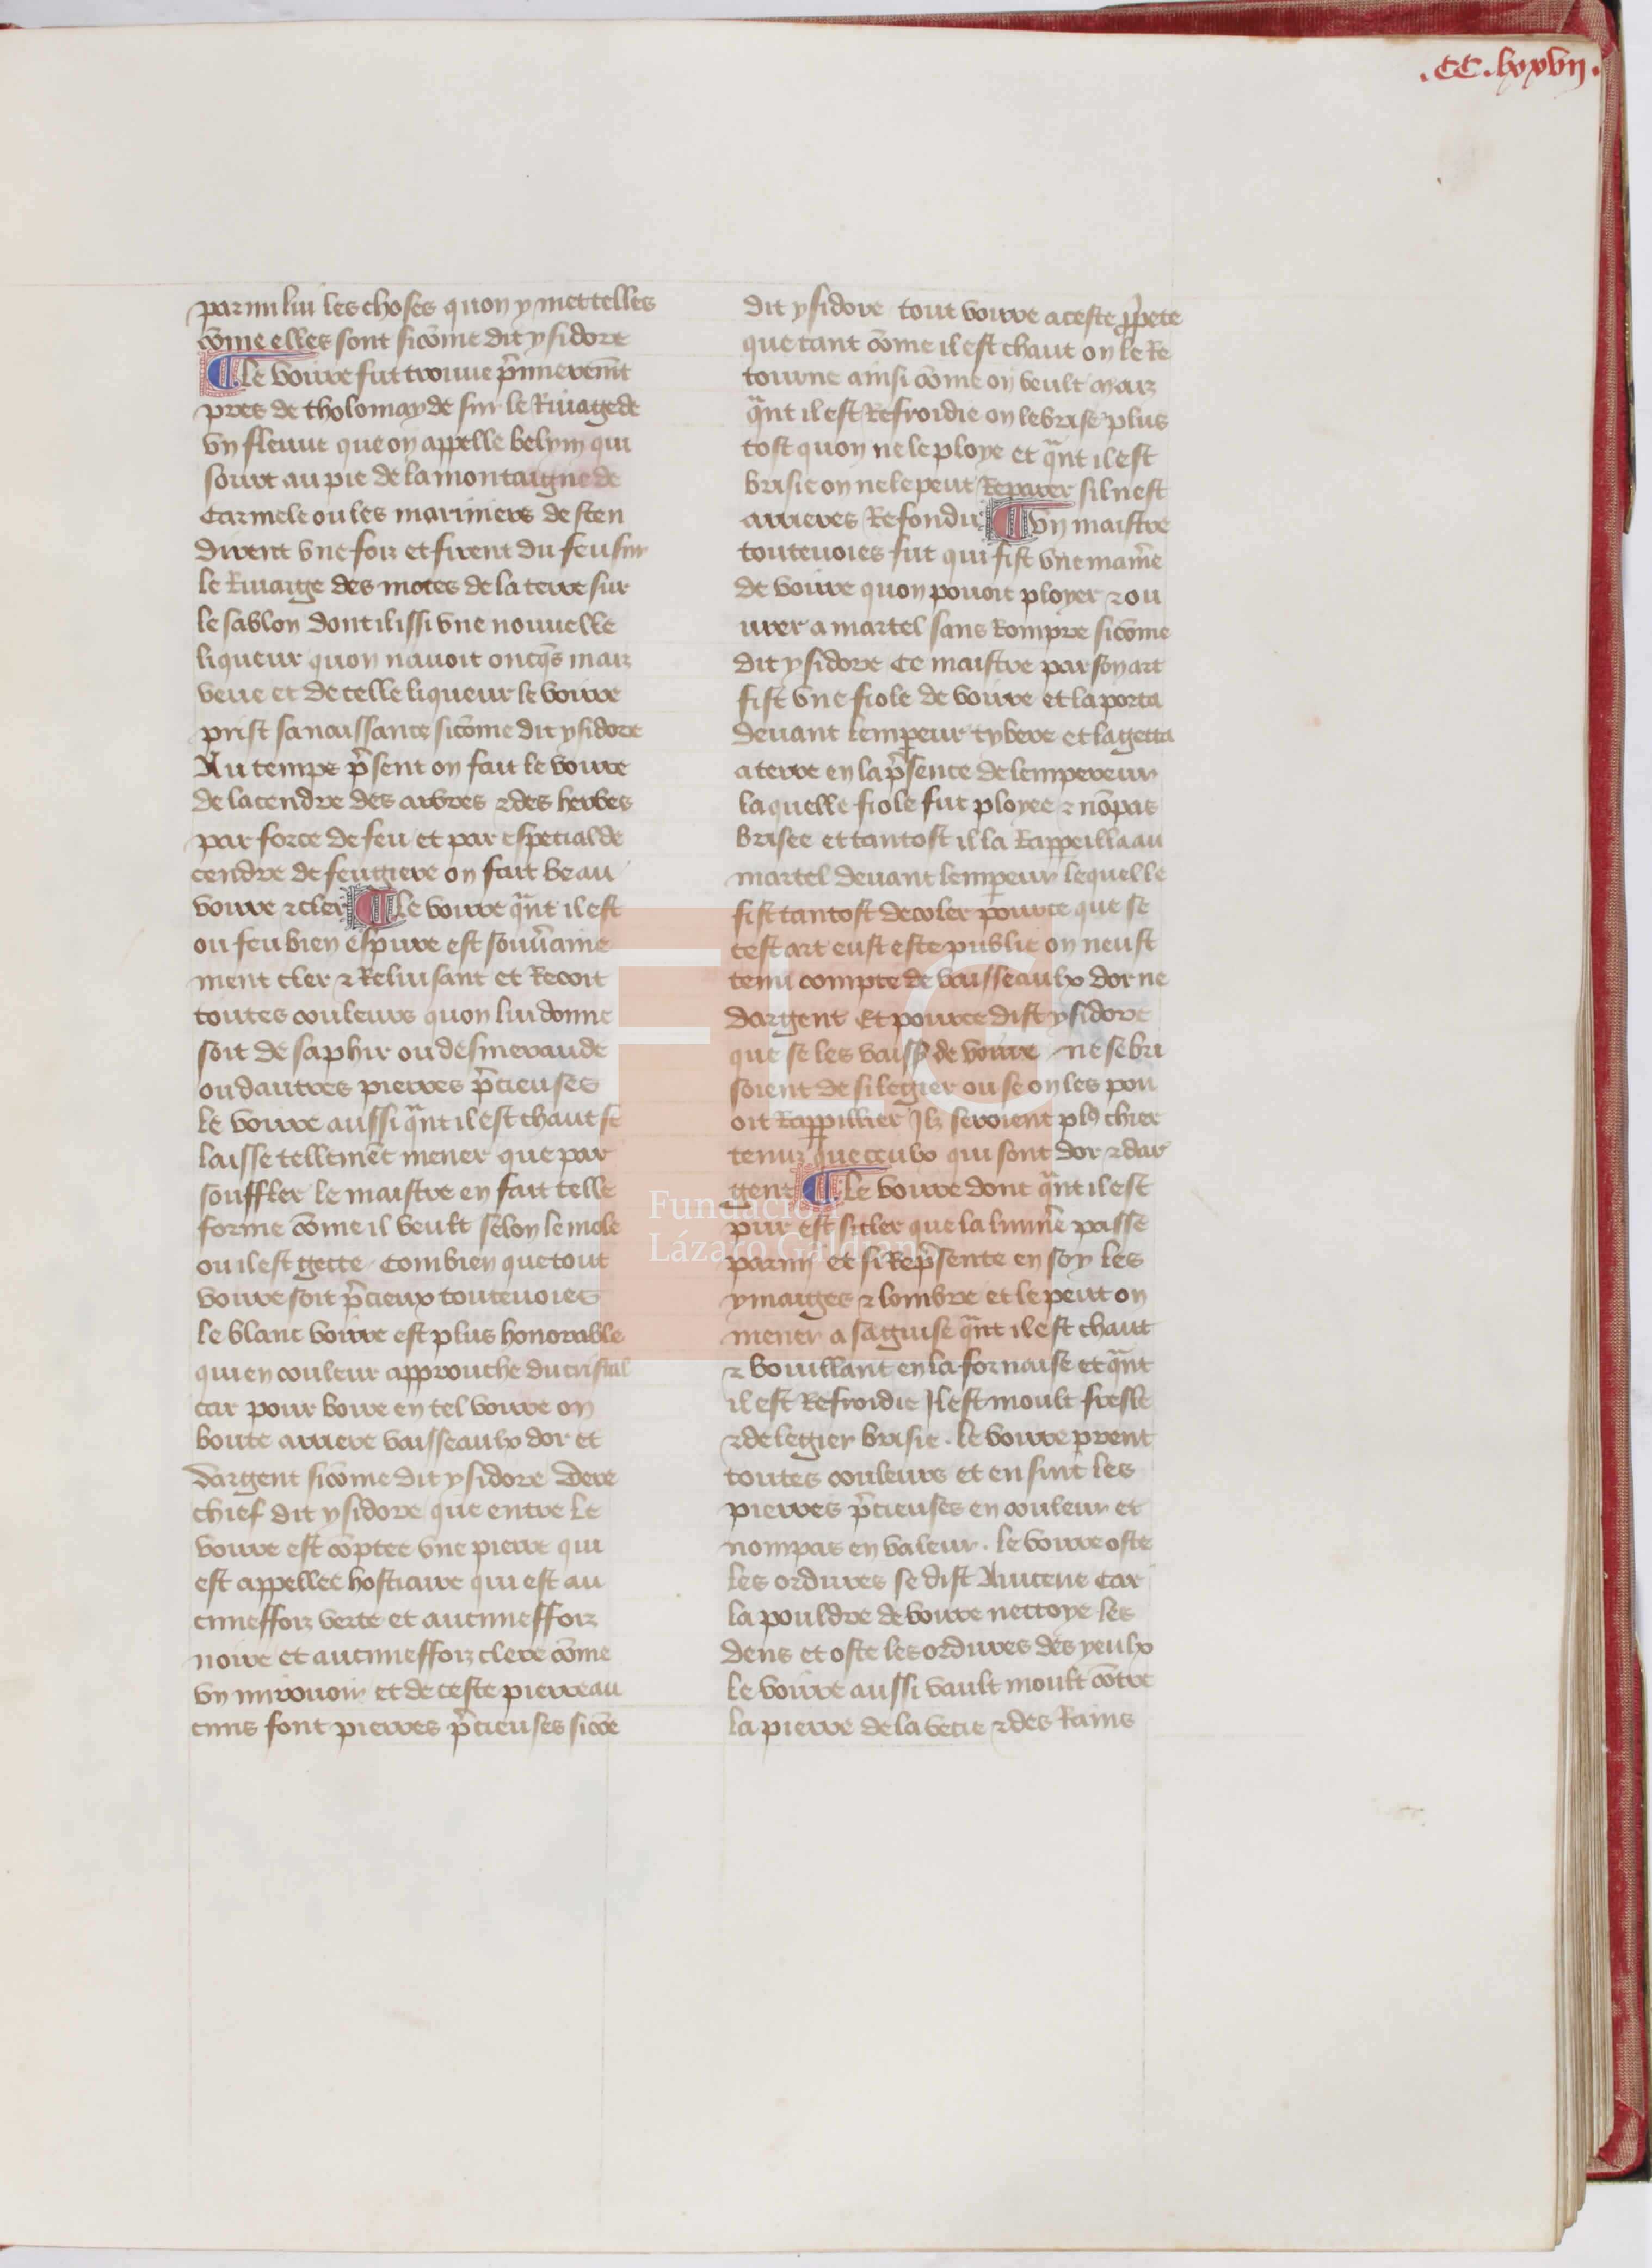 .CC.lxxvij.
parmi lui les choses quon y met telles
cõme elles sont sicõme dit ysidore
¶ Le voirre fut trouue p̃mieremẽt
pres de tholomayde sur le Riuage de
vn fleuue que on appelle belym qui
sourt au pie de la montaigne de
Carmele ou les mariniers desten
dirent vne foiz et firent du feu sur
le Riuaige des motes de la terre sur
le sablon dont il issi vne nouuelle
liqueur quon nauoit oncq̃s maiz
veue et de celle liqueur le voirre
prist sa naissance sicõme dit ysidore
Au temps p̃sent on fait le voirre
de la cendre des arbres ⁊ des herbes
par force de feu et par especial de
cendre de feugiere on fait beau
voirre ⁊ cler ¶ Le voirre q̃nt il est
ou feu bien espure est souu̾aine
ment cler ⁊ Reluisant et Recoit
toutes couleurs quon lui donne
soit de saphir ou desmeraude
ou dautres pierres p̃cieuses
le voirre aussi q̃nt il est chaut se
laisse tellemẽt mener que par
souffler le maistre en fait telle
forme cõme il veult selon le mole
ou il est gecte. Combien que tout
voirre soit p̃cieux touteuoies
le blanc voirre est plus honorable
qui en couleur approuche du cristal
car pour boire en tel voirre on
boute arriere vaisseaulx dor et
dargent sicõme dit ysidore Dere
chief dit ysidore que entre le
voirre est cõptee vne pierre qui
est appellee hosticaire qui est au
cuneffoiz verte et aucuneffoiz
noire et aucuneffoiz clere cõme
vn mirouoir et de ceste pierre au
cuns font pierres p̃cieuses sicõe
dit ysidore tout voirre a ceste p̃pete
que tant cõme il est chaut on le Re
tourne ainsi cõme on veult maiz
q̃nt il est Refroidie on le brise plus
tost quon ne le ploye et q̃nt il est
brisie on ne le peut Reparer sil nest
arrieres Refondu ¶ Vn maistre
touteuoies fut qui fist vne manie̾
de voirre quon pouoit ployer ⁊ ou
urer a martel sans Rompre sicõme
dit ysidore Ce maistre par son art
fist vne fiole de voirre et la porta
deuant lemꝑeur tybere et la getta
a terre en la p̃sence de lempereur
laquelle fiole fut ployee ⁊ nõ pas
brisee et tantost il la Rappeilla au
martel deuant lemꝑeur lequel le
fist tantost decoler pource que se
cest art eust este publie on neust
tenu compte de vaisseaulx dor ne
dargent Et pource dist ysidore
que se les vaiss̃ de voirre ne se bri
soient de si legier ou se on les pou
oit Rappillier Ilz seroient plꝰ chier
tenuz que ceulx qui sont dor ⁊ dar
gent ¶ Le voirre dont q̃nt il est
pur est si cler que la lumie̾ passe
parmi et si Rep̃sente en soy les
ymaiges ⁊ lombre et le peut on
mener a sa guise q̃nt il est chaut
⁊ bouillant en la fornaise et q̃nt
il est Refroidie Il est moult fresle
⁊ de legier brisie. le voirre prent
toutes couleurs et ensuit les
pierres p̃cieuses en couleur et
nompas en valeur. le voirre oste
les ordures se dist Auicene Car
la pouldre de voirre nettoye les
dens et oste les ordures des yeulx
le voirre aussi vault moult cõtre
la pierre de la vecie ⁊ des Rains
Fundación
Lázaro Galdiano
FLG